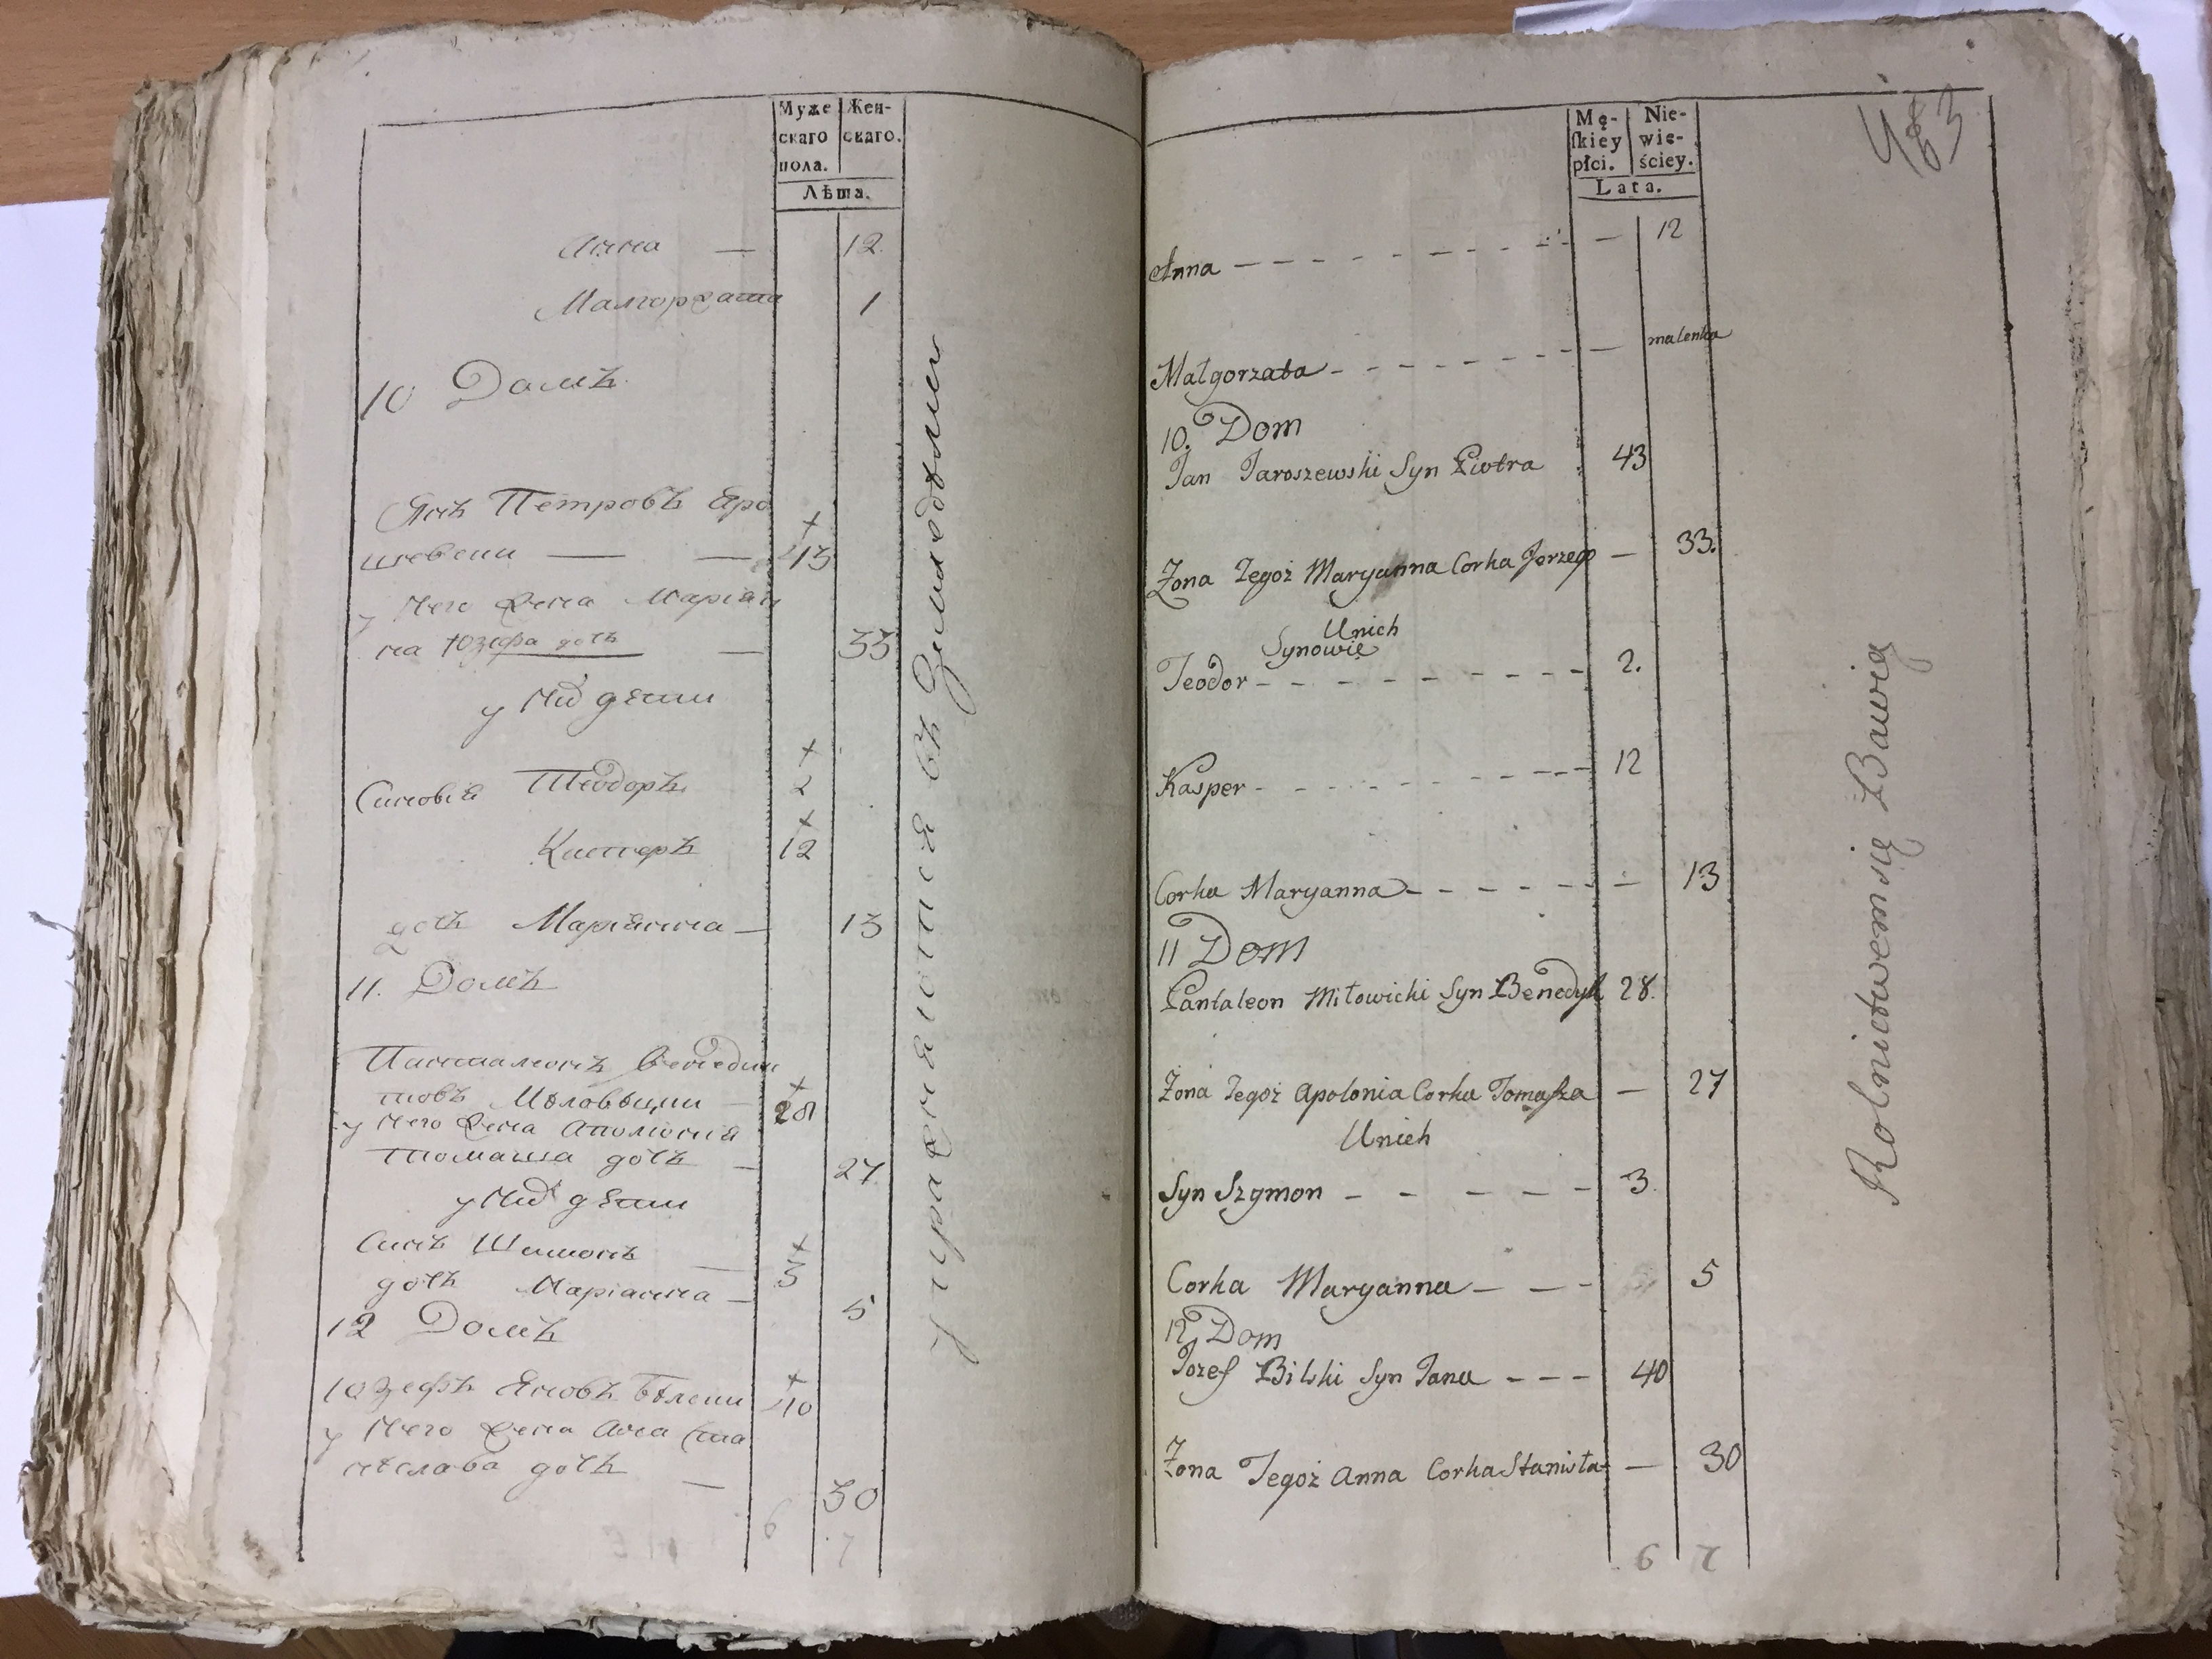 Муже Жен-
скаго скаго.
пола.
Лѣта.
Анна — 12
Малгоржата 1
10 Домъ
Янъ Петровъ Яро
шевски — — 43
у него жена Маріан
на Юзефа дочь — 33
у них дети
Синовія Теодоръ 2
Касперъ 12
дочь Маріянна — 13
11. Домъ
Панталионъ Бенедик
товъ Миловицки — 28
у него жена Аполіонія
Томаша дочь — 27
у них дети
Синъ Шимонъ — 3
дочь Маріанна — 5
12 Домъ
Юзефъ Яновъ Билски 40
у него жена Анна Ста
нислава дочь — 30
6 7
упражняются въ Земледолии
483
Mę- Nie-
skiey wie-
płci. ściey.
Lata.
Anna — 12
Małgorzata — malenka
10. Dom
Jan Jaroszewski Syn Piotra 43
Żona Tegoż Maryanna Corka Jerzego — 33.
Unich
Synowie
Teodor 2.
Kasper 12
Corka Maryanna — 13
11 Dom
Pantaleon Miłowicki Syn Benedyk 28.
Żona Tegoż Apolonia Corka Tomasza — 27
Unich
Syn Szymon 3.
Corka Maryanna 5
12 Dom
Jozef Bilski Syn Jana 40
Żona Tegoż Anna Corka Stanisła — 30
6 7
Rolnictwem się Bawią